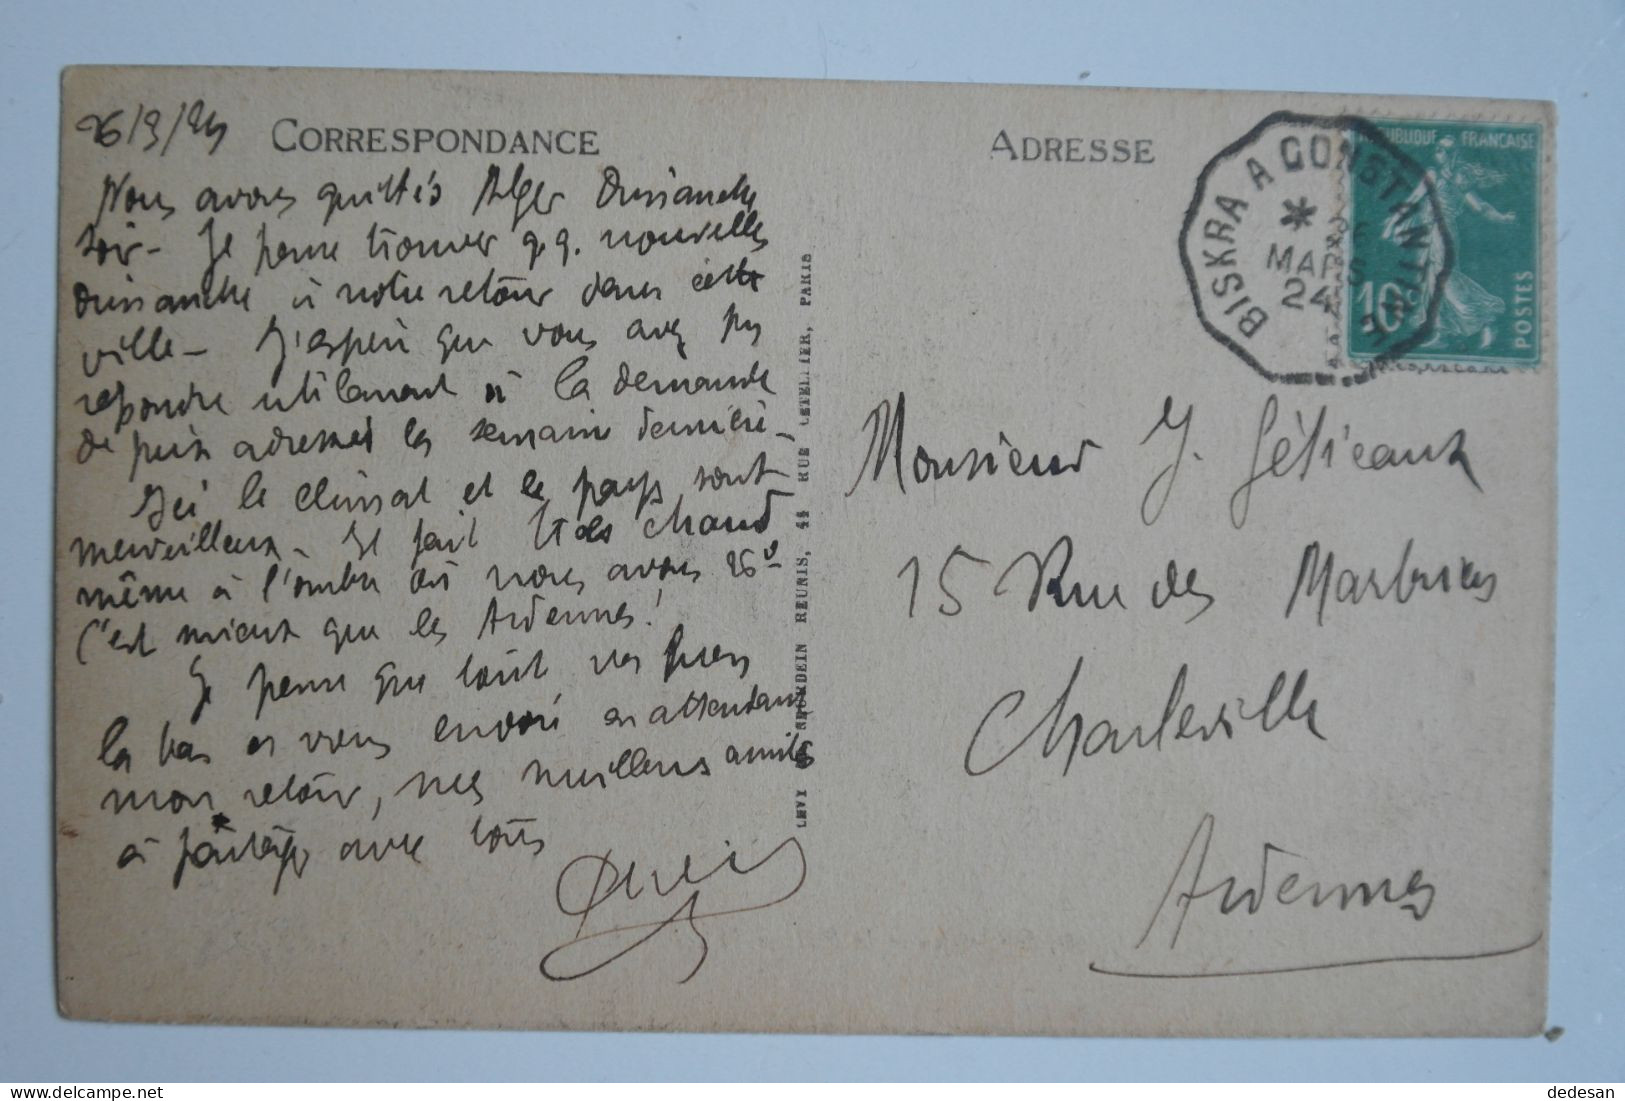 26/3/24
CORRESPONDANCE
Nous avons quittés Alger Dimanche
soir - Je pense trouver q.q. nouvelles
Dimanche à notre retour dans cette
ville - J'espère que vous avez pu
repondre utilement à la demande
de puis adressée la semaine dernière -
Ici le climat et le pays sont
merveilleux - Il fait très chaud
même à l'ombre où nous avons 26° -
C'est mieux que les Ardennes!
Je pense que tout va bien
la bas et vous envoie en attendant
mon retour, mes meilleurs amitiés
à partager avec tous
LEVY NEURDEIN REUNIS, 44 RUE LETELLIER, PARIS
ADRESSE
BISKRA A CONSTANTINE
*
MARS
24
REPUBLIQUE FRANÇAISE
10c
POSTES
Monsieur J.
15 Rue des
Charleville
Ardennes
dedesan